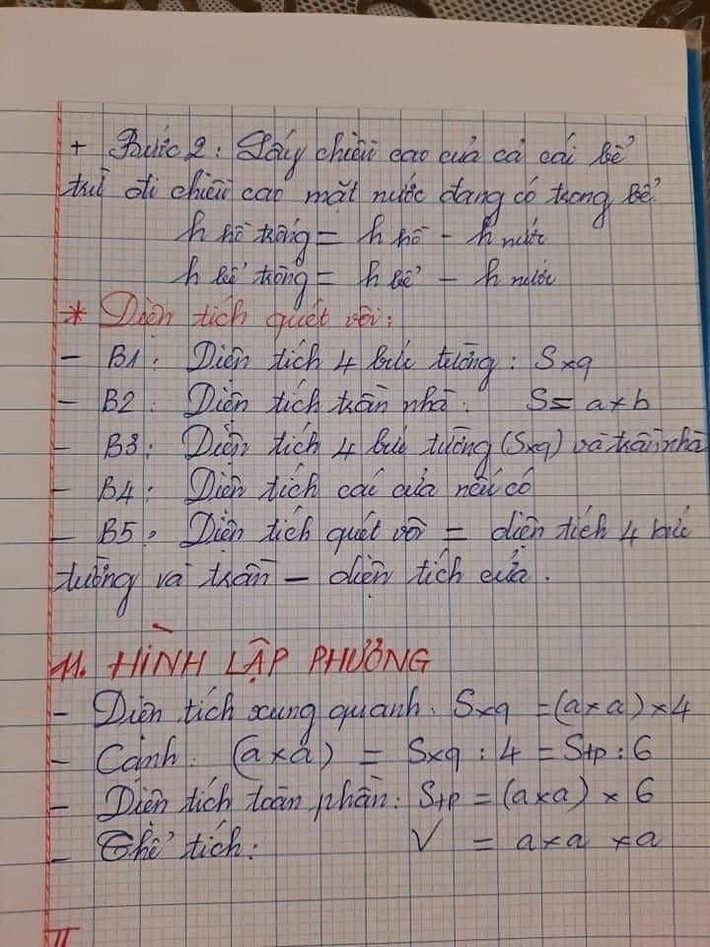 + Bước 2: Lấy chiều cao của cả cái bể
trừ đi chiều cao mặt nước đang có trong bể.
h hồ trống = h hồ - h nước
h bể trống = h bể - h nước
* Diện tích quét vôi:
- B1: Diện tích 4 bức tường: Sxq
- B2: Diện tích trần nhà: S = a x b
- B3: Diện tích 4 bức tường (Sxq) và trần nhà
- B4: Diện tích các cửa nếu có
- B5: Diện tích quét vôi = diện tích 4 bức
tường và trần - diện tích cửa.
11. HÌNH LẬP PHƯƠNG
- Diện tích xung quanh: Sxq = (a x a) x 4
- Cạnh: (a x a) = Sxq : 4 = Stp : 6
- Diện tích toàn phần: Stp = (a x a) x 6
- Thể tích: V = a x a x a